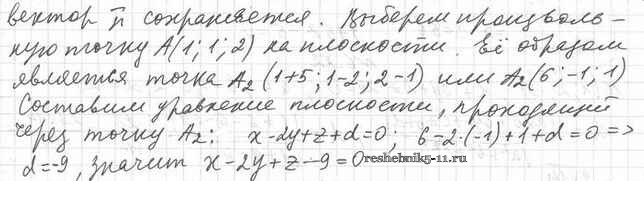 вектор n̅ сохраняется. Выберем произволь-
ную точку A(1; 1; 2) на плоскости. Её образом
является точка A₂ (1+5; 1-2; 2-1) или A₂(6; -1; 1)
Составим уравнение плоскости, проходящей
через точку A₂: x-2y+z+d=0; 6-2·(-1)+1+d=0 =>
d=-9, значит x-2y+z-9=0 reshebnik5-11.ru